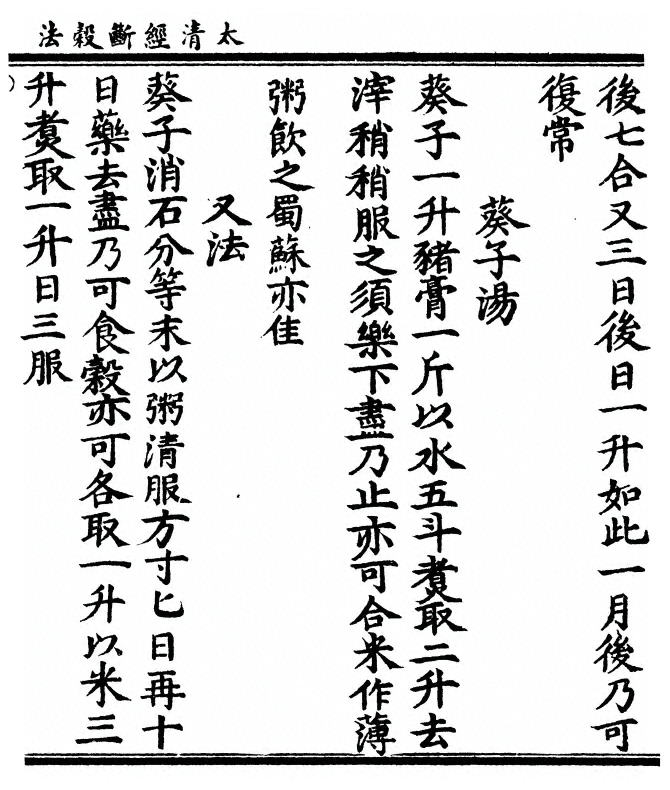 太清經斷穀法
後七合又三日後日一升如此一月後乃可
復常
葵子湯
葵子一升豬膏一斤以水五斗煑取二升去
滓稍稍服之須藥下盡乃止亦可合米作薄
粥飲之蜀蘇亦佳
又法
葵子消石分等末以粥清服方寸匕日再十
日藥去盡乃可食穀亦可各取一升以米三
升煑取一升日三服